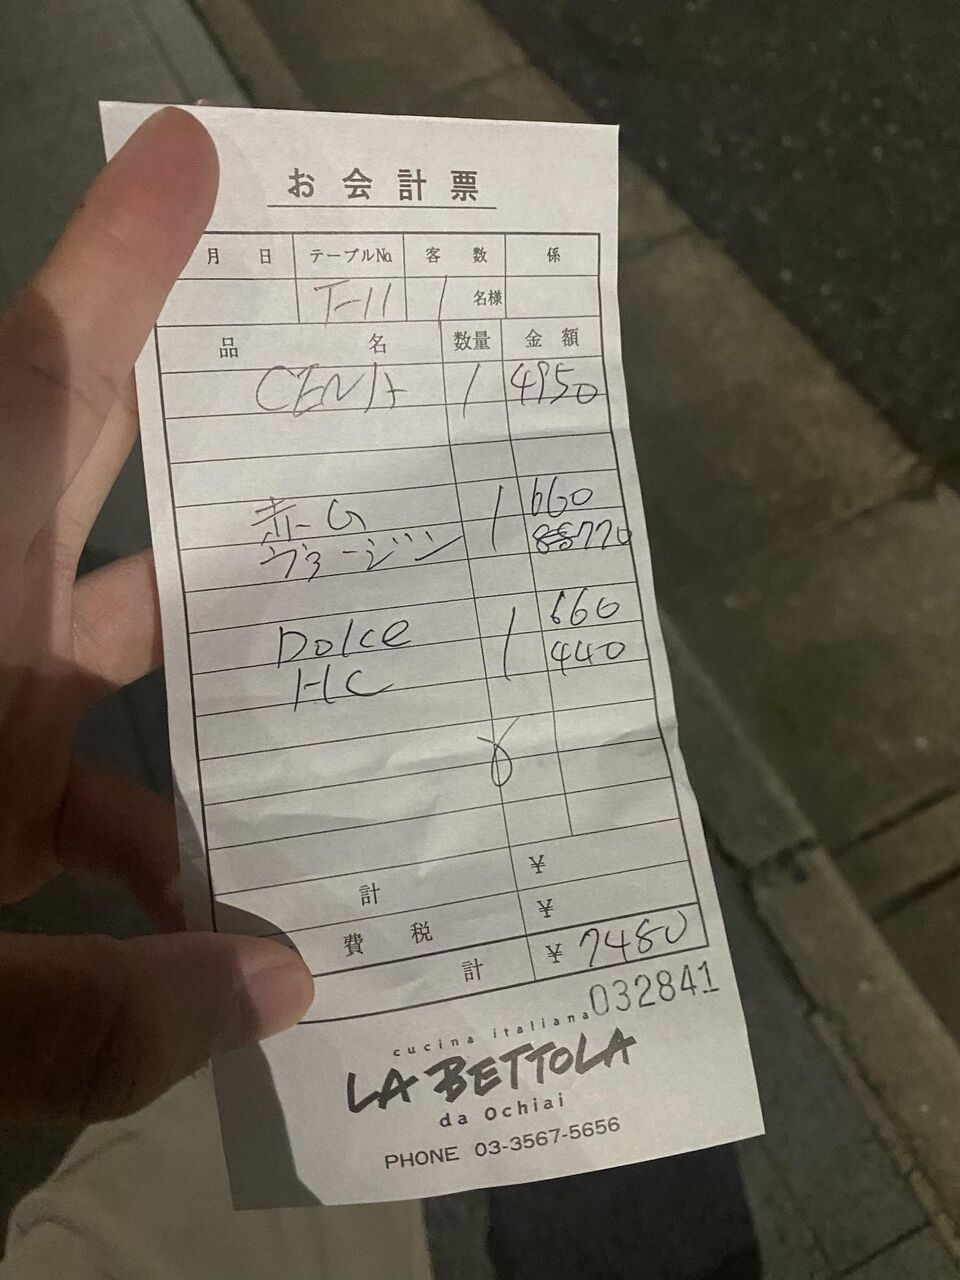 お会計票
月 日 テーブルNo. 客数 係
T-11 1 名様
品名 数量 金額
CENA 1 4950
赤-G 1 660
ヴァージン 1 770
Dolce 1 660
HC 1 440
計 ¥
費税 ¥
計 ¥ 7480
032841
cucina italiana
LA BETTOLA
da Ochiai
PHONE 03-3567-5656